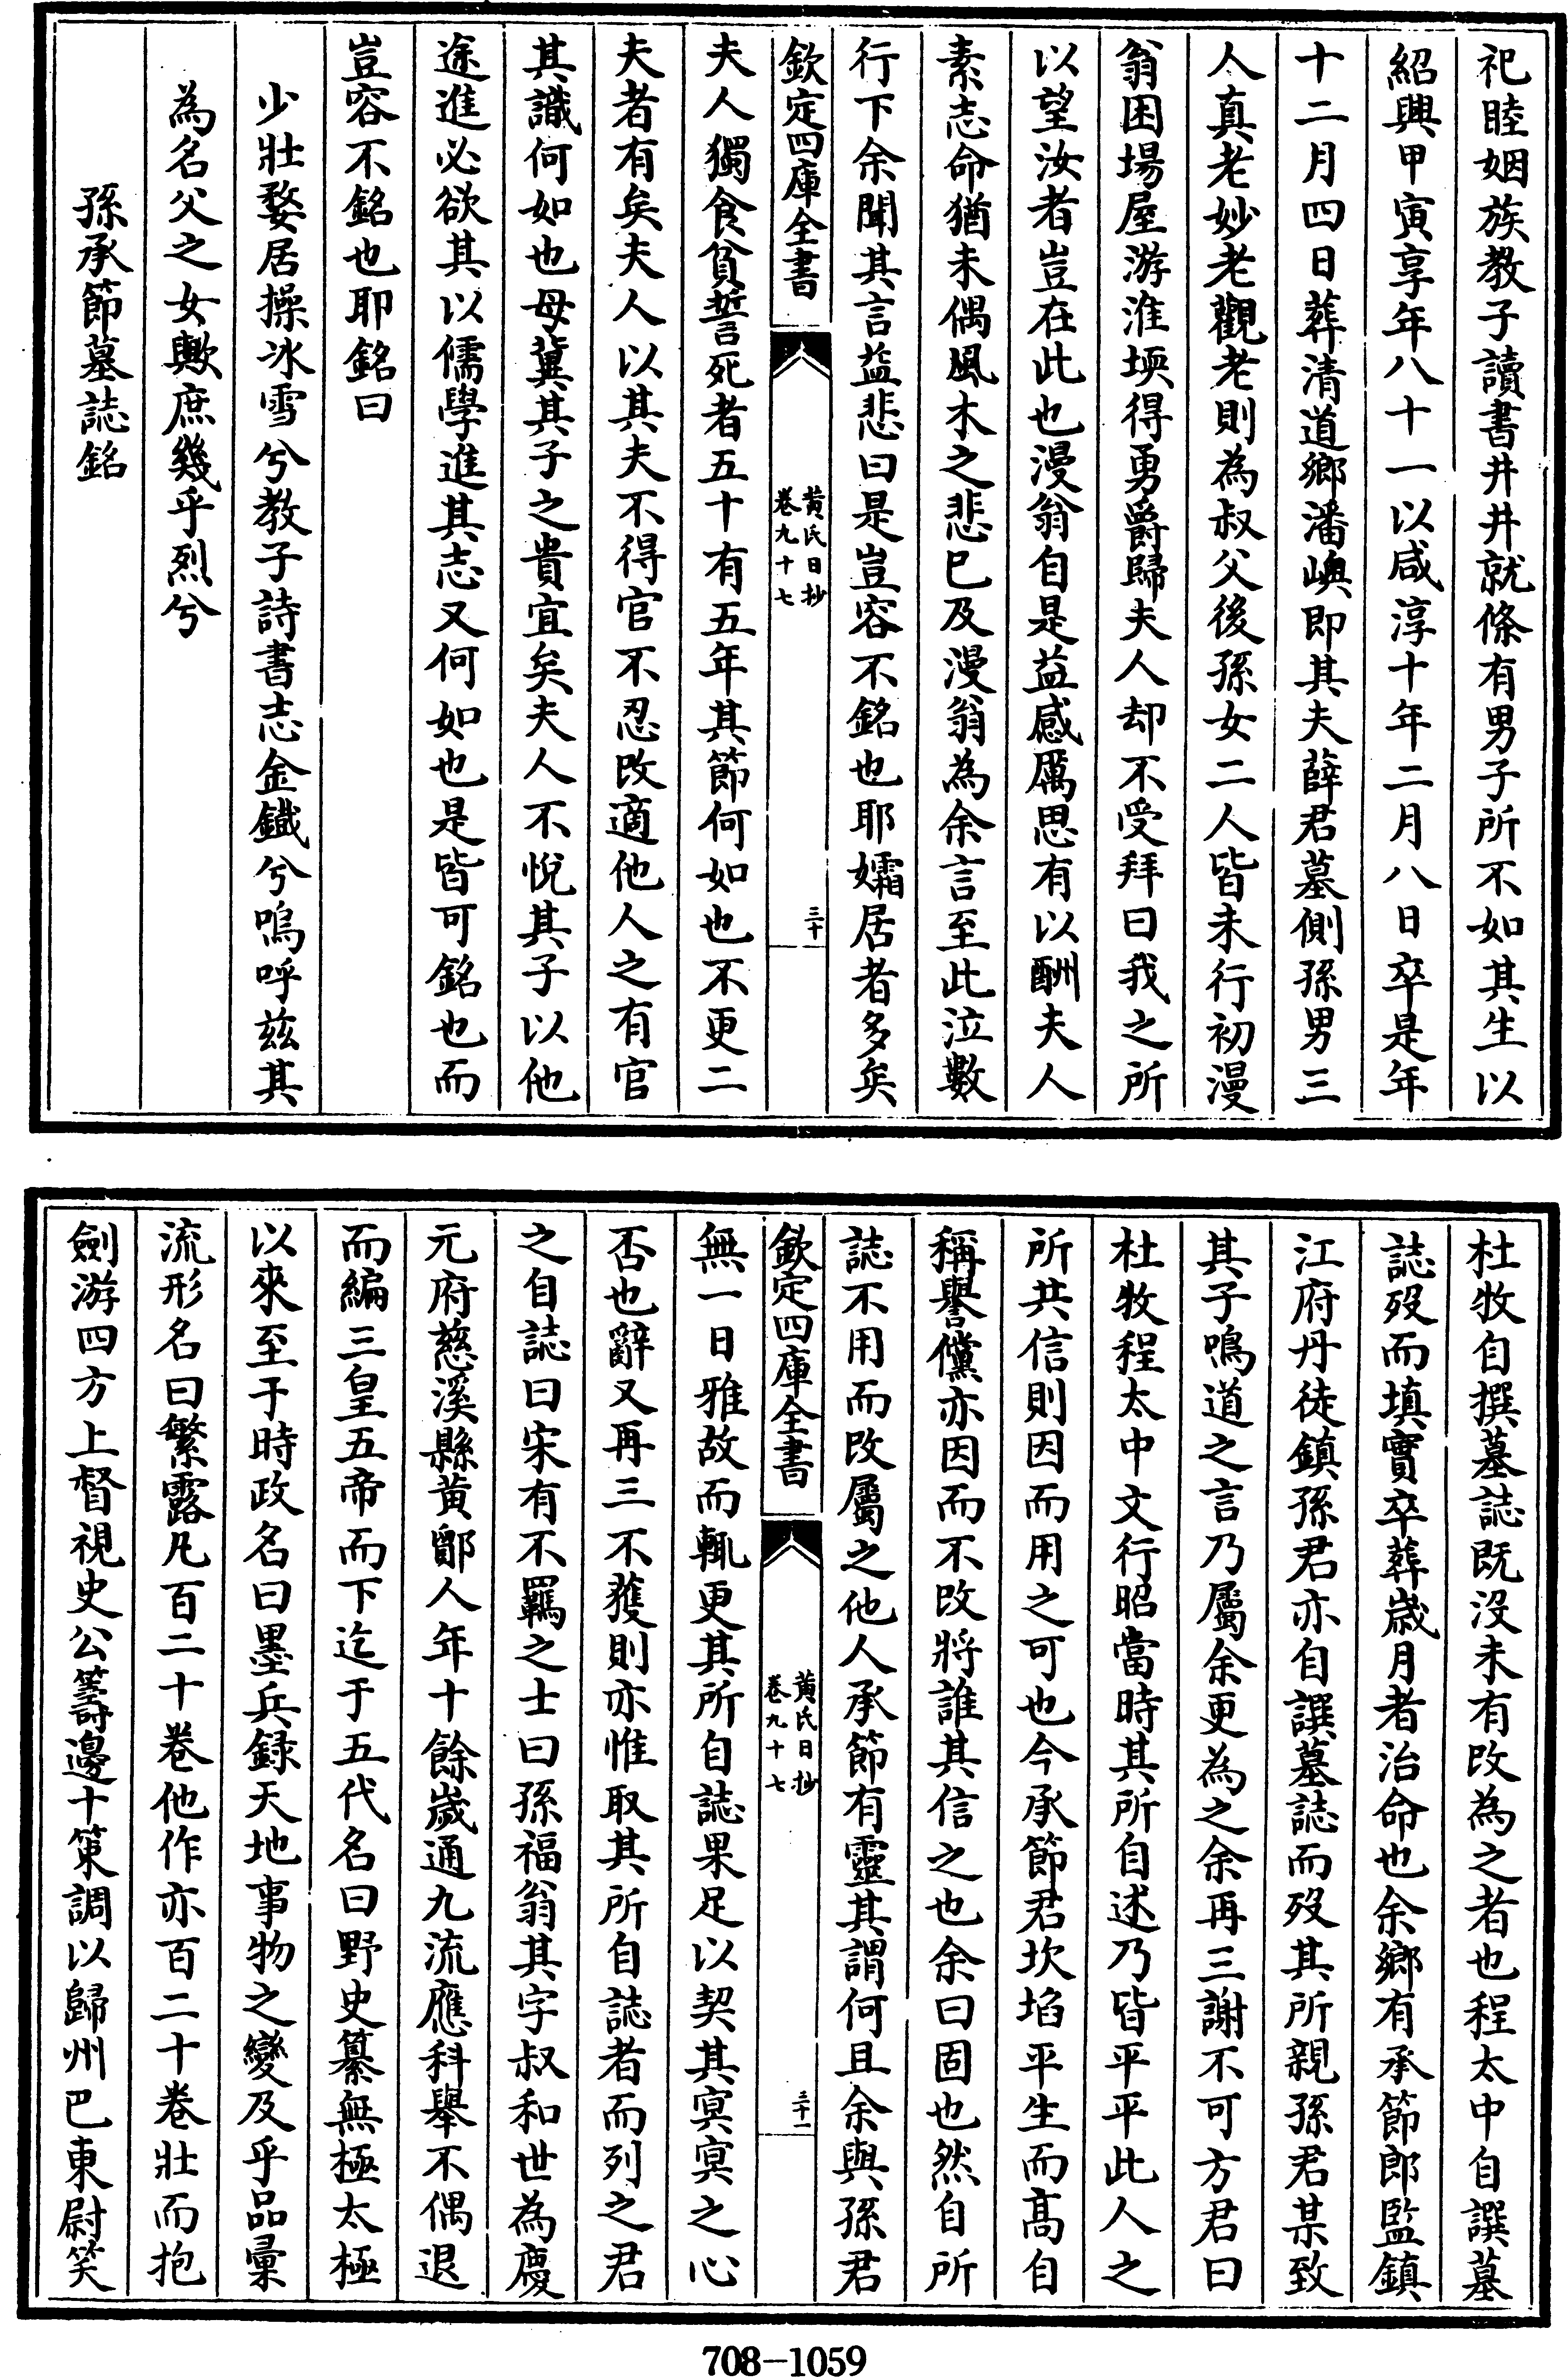 祀睦姻族教子讀書井井就條有男子所不如其生以
紹興甲寅享年八十一以咸淳十年二月八日卒是年
十二月四日葬清道鄉潘嶴即其夫薛君墓側孫男三
人真老妙老觀老則為叔父後孫女二人皆未行初漫
翁困場屋游淮堧得勇爵歸夫人却不受拜曰我之所
以望汝者豈在此也漫翁自是益感厲思有以酬夫人
素志命猶未偶風木之悲已及漫翁為余言至此泣數
行下余聞其言益悲曰是豈容不銘也耶孀居者多矣
欽定四庫全書
黃氏日抄
卷九十七
三十
夫人獨食貧誓死者五十有五年其節何如也不更二
夫者有矣夫人以其夫不得官不忍改適他人之有官
其識何如也母冀其子之貴宜矣夫人不悅其子以他
途進必欲其以儒學進其志又何如也是皆可銘也而
豈容不銘也耶銘曰
少壯婺居操冰雪兮教子詩書志金鐵兮嗚呼茲其
為名父之女歟庶幾乎烈兮
孫承節墓誌銘
杜牧自撰墓誌既沒未有改為之者也程太中自譔墓
誌歿而填實卒葬歲月者治命也余鄉有承節郎監鎮
江府丹徒鎮孫君亦自譔墓誌而歿其所親孫君某致
其子鳴道之言乃屬余更為之余再三謝不可方君曰
杜牧程太中文行昭當時其所自述乃皆平平此人之
所共信則因而用之可也今承節君坎坷平生而高自
稱譽儻亦因而不改將誰其信之也余曰固也然自所
誌不用而改屬之他人承節有靈其謂何且余與孫君
欽定四庫全書
黃氏日抄
卷九十七
三十一
無一日雅故而輒更其所自誌果足以契其冥冥之心
否也辭又再三不獲則亦惟取其所自誌者而列之君
之自誌曰宋有不羈之士曰孫福翁其字叔和世為慶
元府慈溪縣黃鄮人年十餘歲通九流應科舉不偶退
而編三皇五帝而下迄于五代名曰野史纂無極太極
以來至于時政名曰墨兵錄天地事物之變及乎品彙
流形名曰繁露凡百二十卷他作亦百二十卷壯而抱
劍游四方上督視史公籌邊十策調以歸州巴東尉笑
708-1059